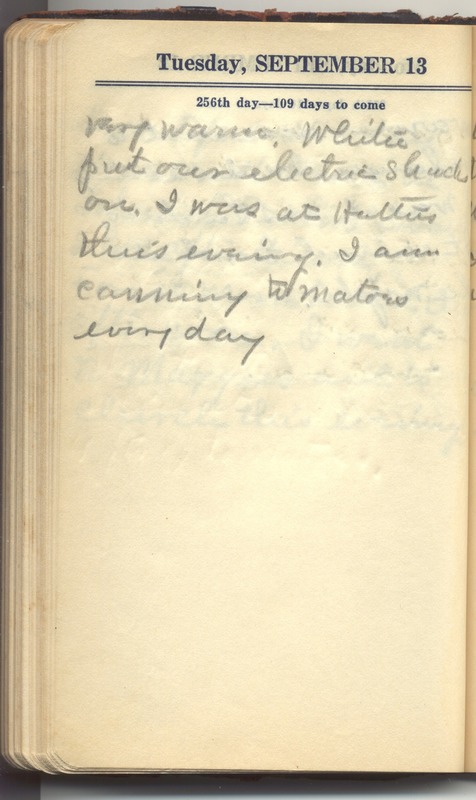 Tuesday, SEPTEMBER 13
256th day—109 days to come
very warm. White
put our electric Shack
on. I was at Hatties
this evening. I am
canning tomatoes
every day